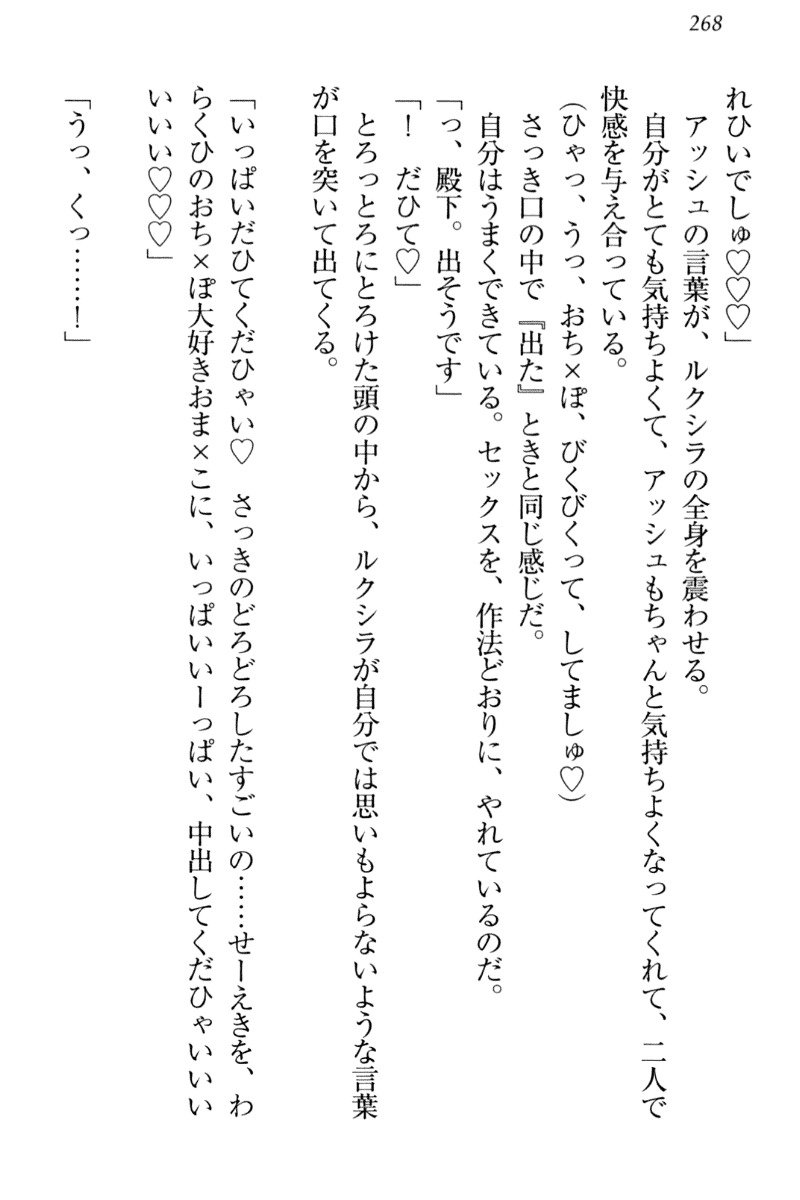 268
れひいでしゅ♡♡♡」
　アッシュの言葉が、ルクシラの全身を震わせる。
　自分がとても気持ちよくて、アッシュもちゃんと気持ちよくなってくれて、二人で
快感を与え合っている。
（ひゃっ、うっ、おち×ぽ、びくびくって、してましゅ♡）
　さっき口の中で『出た』ときと同じ感じだ。
　自分はうまくできている。セックスを、作法どおりに、やれているのだ。
「っ、殿下。出そうです」
「！　だひて♡」
　とろっとろにとろけた頭の中から、ルクシラが自分では思いもよらないような言葉
が口を突いて出てくる。
「いっぱいだひてくだひゃい♡　さっきのどろどろしたすごいの……せーえきを、わ
らくひのおち×ぽ大好きおま×こに、いっぱいいーっぱい、中出してくだひゃいいい
いいい♡♡♡」
「うっ、くっ……！」